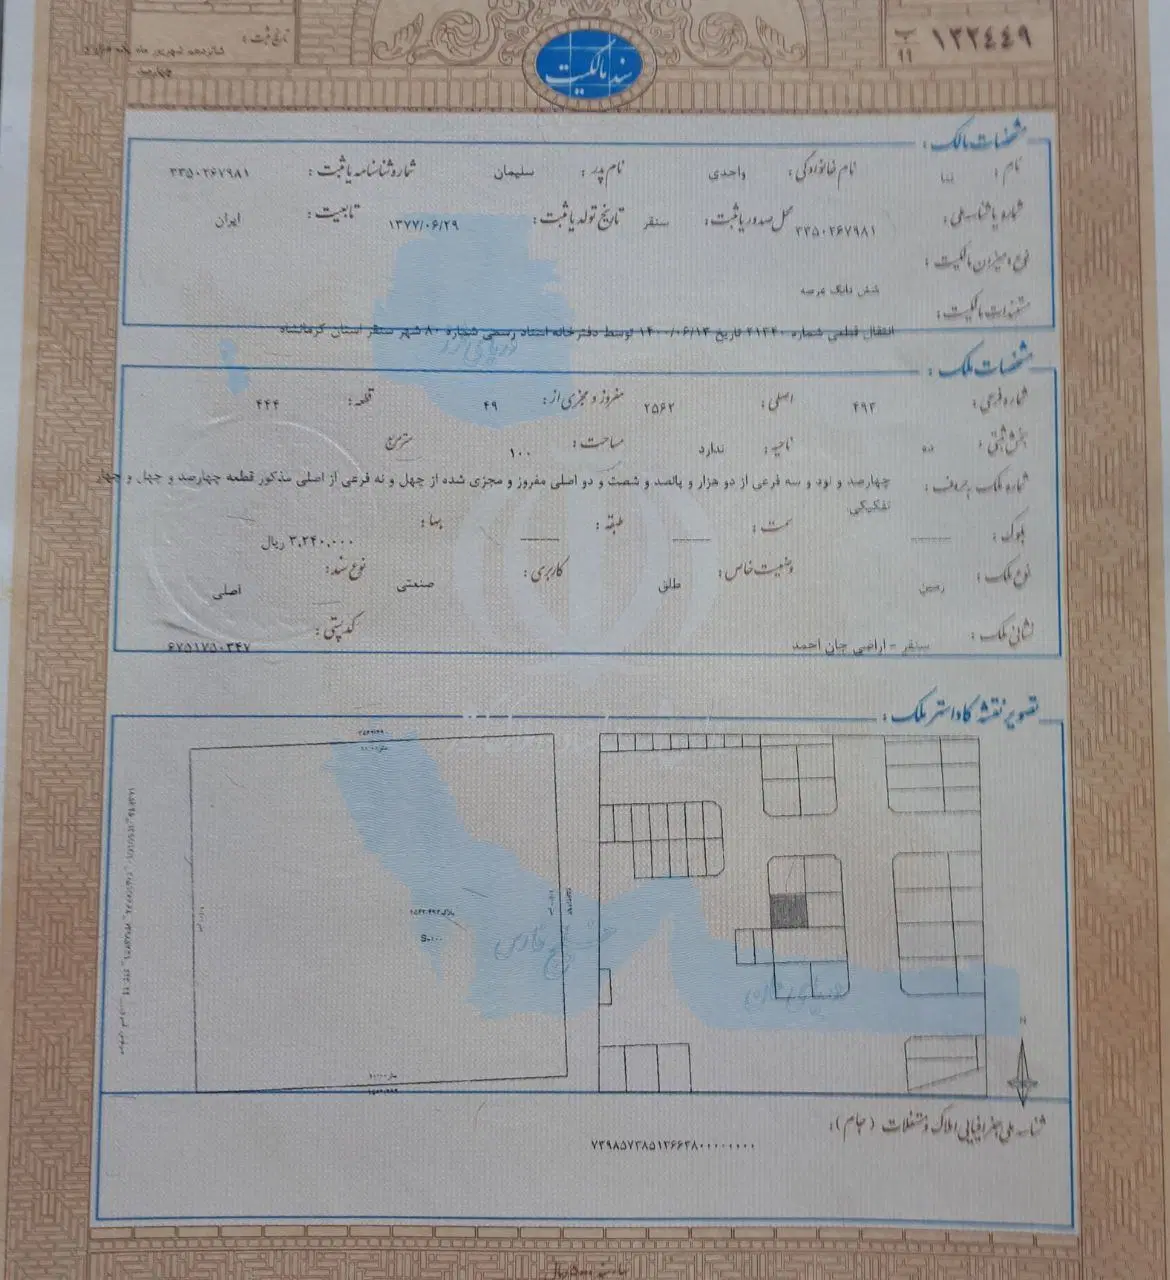 ۱۲۲۴۴۹ ب ۱۱
تاریخ ثبت:
شانزدهم شهریور ماه
سند مالکیت
مشخصات مالک:
نام: نام خانوادگی: واحدی نام پدر: سلیمان شماره شناسنامه یا ثبت: ۳۳۵۰۲۶۷۹۸۱
شماره یا شناسه ملی: ۳۳۵۰۲۶۷۹۸۱ محل صدور یا ثبت: سنقر تاریخ تولد یا ثبت: ۱۳۷۷/۰۶/۲۹ تابعیت: ایران
نوع و میزان مالکیت:
شش دانگ عرصه
مستندات مالکیت:
انتقال قطعی شماره ۲۱۲۴۰ تاریخ ۱۴۰۰/۰۶/۱۳ توسط دفترخانه اسناد رسمی شماره ۸۰ شهر سنقر استان کرمانشاه
دریای خزر
مشخصات ملک:
شماره فرعی: ۴۹۳ اصلی: ۲۵۶۲ مفروز و مجزی از: ۴۹ قطعه: ۴۴۴
بخش ثبتی: ده ناحیه: ندارد مساحت: ۱۰۰ مترمربع
شماره ملک به حروف: چهارصد و نود و سه فرعی از دو هزار و پانصد و شصت و دو اصلی مفروز و مجزی شده از چهل و نه فرعی از اصلی مذکور قطعه چهارصد و چهل و چهار
تفکیکی
بلوک: سمت: طبقه: بها: ۳,۲۴۰,۰۰۰ ریال
نوع ملک: زمین وضعیت خاص: طلق کاربری: صنعتی نوع سند: اصلی
نشانی ملک: سنقر - اراضی جان احمد کد پستی: ۶۷۵۱۷۵۰۳۴۷
تصویر نقشه کاداستر ملک:
S=۱۰۰
خلیج فارس
دریای عمان
N
شناسه ملی جغرافیایی املاک و مستغلات (جام):
۷۳۹۸۵۷۳۸۵۱۲۶۶۳۸۰۰۰۰۰۰۰۰